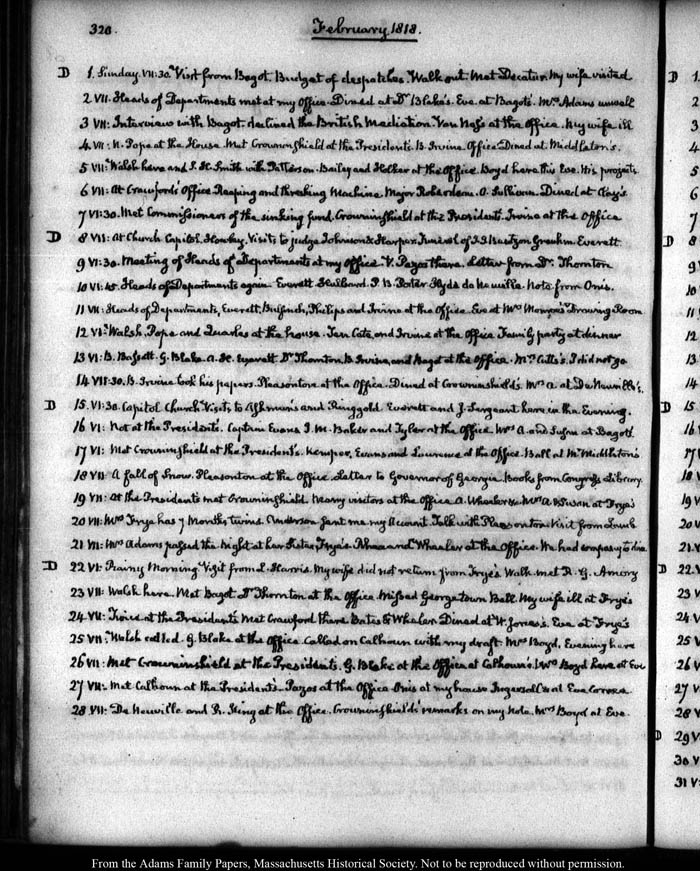 320.
February 1818.
D 1. Sunday. VII:30. Visit from Bagot. Budget of despatches. Walk out. Met Decatur. My wife visited
2 VII. Heads of Departments met at my Office. Dined at Dr. Blake's. Eve. at Bagot's. Mrs. Adams unwell
3 VII: Interview with Bagot. declined the British Mediation. Van Ness at the Office. My wife ill
4 VII: N. Pope at the House. Met Crowninshield at the Presidents. B. Irvine. Office. Dined at Middleton's.
5 VII: Walsh here and S. H. Smith with Patterson. Bailey and Holker at the Office. Boyd here this Eve. His projects
6 VII: At Crawford's Office Reaping and threshing Machine. Major Roberdeau. O. Sullivan. Dined at Clay's.
7 VI:30. Met Commissioners of the sinking fund. Crowninshield at the Presidents. Irvine at the Office
D 8 VII: At Church Capitol. Hawley. Visits to judge Johnson & Harper. Funeral of Greuhm Everett
9 VI:30. Meeting of Heads of Departments at my Office. V. Pazos there. Letter from Dr. Thornton
10 VI:45. Heads of Departments again. Everett Hubbard. P. B. Porter Hyde de Neuville. Note from Onis.
11 VII: Heads of Departments, Everett, Bulfinch, Philips and Irvine at the Office. Eve at Mrs Monroe's Drawing Room
12 VI: Walsh, Pope and Quarles at the house. Ten Cate, and Irvine at the Office Family party at dinner
13 VI: B. Bassett. G. Blake. A. H. Everett. Dr Thornton, B. Irvine, and Bagot at the Office. Mrs Cutts's. I did not go
14 VII:30. B. Irvine took his papers. Pleasonton at the Office. Dined at Crowninshield's. Mrs A. at De Neuville's.
D 15. VI:30. Capitol Church Visits to Ashmun's and Ringgold. Everett and J. Sergeant here in the Evening.
16 VI: Not at the Presidents. Captain Evans. J. M. Baker and Tyler at the Office. Mrs A. and Susan at Bagot's
17 VI: Met Crowninshield at the President's. Kemper, Evans and Laurence at the Office. Ball at Mr Middleton's
18 VII: A fall of Snow. Pleasonton at the Office. Letter to Governor of Georgia. Books from Congress Library.
19 VII: At the Presidents met Crowninshield. Many visitors at the Office. A. Wheaton &c. Mrs A. & Susan at Frye's
20 VII: Mrs Frye has 7 Months twins. Anderson sent me my Account. Talk with Pleasonton. Visit from
21 VII: Mrs Adams passed the Night at her Sister, Frye's. Rhea and Wheaton at the Office. We had company to dine
D 22 VI: Rainy Morning Visit from L. Harris. My wife did not return from Frye's. Walk met R. G. Amory
23 VII: Walsh here. Met Bagot. Dr Thornton at the Office. Missed Georgetown Ball. My wife ill at Frye's
24 VII: Twice at the Presidents. Met Crawford there. Bates & Whaler. Dined at W. Jones's. Eve at Frye's
25 VII: Walsh called. G. Blake at the Office. Called on Calhoun with my draft. Mrs Boyd. Evening here
26 VII: Met Crowninshield at the Presidents. G. Blake at the Office. at Calhoun's. Mrs Boyd here at Eve
27 VII: Met Calhoun at the President's. Pazos at the Office. Onis at my house Ingersoll's at Eve. Correa
28 VII: De Neuville and R. King at the Office. Crowninshield's remarks on my Note. Mrs Boyd at Eve.
D 1.
2
3.
4.
5
6
7
D 8
9
10
11
12
13
14
D 15
16
17
18
19
20
21.
D 22.
23
24
25
26
27
28
D 29
30
31
From the Adams Family Papers, Massachusetts Historical Society. Not to be reproduced without permission.